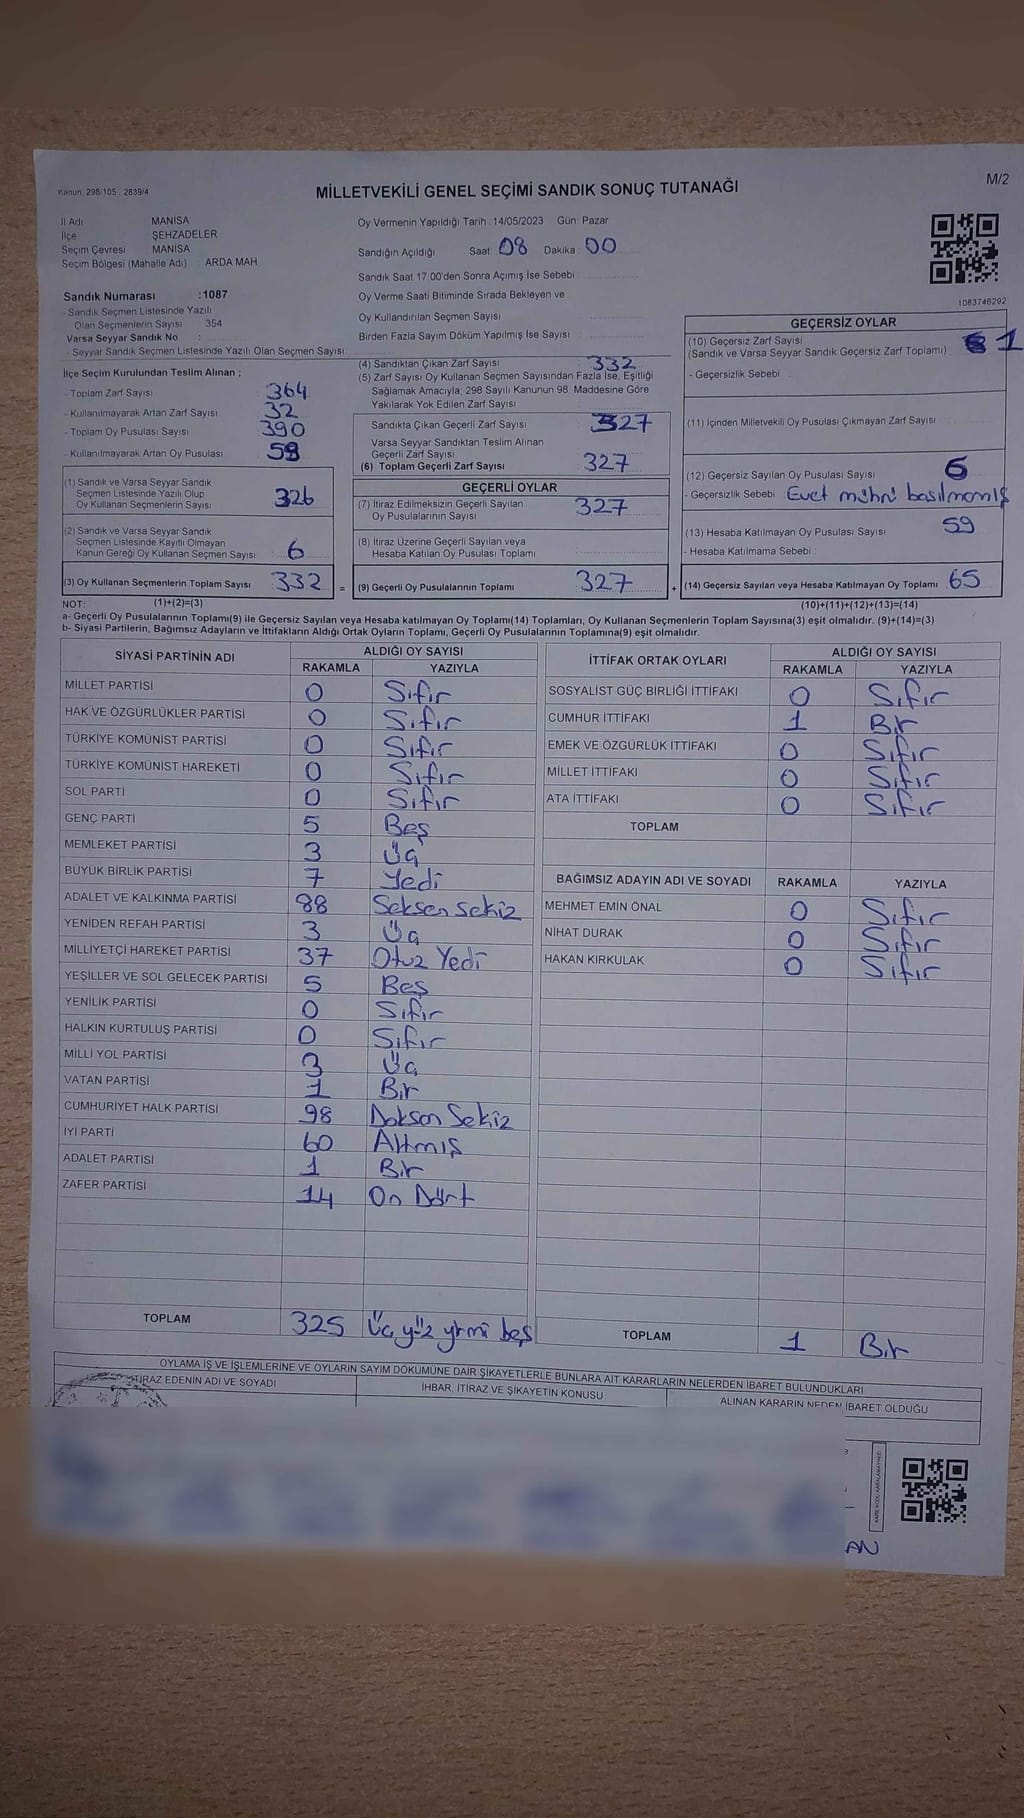 Kanun. 298/105 , 2839/4
MİLLETVEKİLİ GENEL SEÇİMİ SANDIK SONUÇ TUTANAĞI
M/2
İl Adı MANİSA
İlçe ŞEHZADELER
Seçim Çevresi MANİSA
Seçim Bölgesi (Mahalle Adı) ARDA MAH.
Oy Vermenin Yapıldığı Tarih : 14/05/2023 Gün: Pazar
Sandığın Açıldığı Saat: 08 Dakika: 00
Sandık Saat 17:00'den Sonra Açımış İse Sebebi :
Oy Verme Saati Bitiminde Sırada Bekleyen ve
Oy Kullandırılan Seçmen Sayısı
Birden Fazla Sayım Döküm Yapılmış İse Sayısı :
1083746292
Sandık Numarası :1087
- Sandık Seçmen Listesinde Yazılı
Olan Seçmenlerin Sayısı 354
Varsa Seyyar Sandık No :
- Seyyar Sandık Seçmen Listesinde Yazılı Olan Seçmen Sayısı:
İlçe Seçim Kurulundan Teslim Alınan ;
- Toplam Zarf Sayısı 364
- Kullanılmayarak Artan Zarf Sayısı 32
- Toplam Oy Pusulası Sayısı 390
- Kullanılmayarak Artan Oy Pusulası
(1) Sandık ve Varsa Seyyar Sandık
Seçmen Listesinde Yazılı Olup
Oy Kullanan Seçmenlerin Sayısı 326
(2) Sandık ve Varsa Seyyar Sandık
Seçmen Listesinde Kayıtlı Olmayan
Kanun Gereği Oy Kullanan Seçmen Sayısı 6
(3) Oy Kullanan Seçmenlerin Toplam Sayısı 332 =
(1)+(2)=(3)
(4) Sandıktan Çıkan Zarf Sayısı : 332
(5) Zarf Sayısı Oy Kullanan Seçmen Sayısından Fazla İse, Eşitliği
Sağlamak Amacıyla; 298 Sayılı Kanunun 98. Maddesine Göre
Yakılarak Yok Edilen Zarf Sayısı :
Sandıkta Çıkan Geçerli Zarf Sayısı : 327
Varsa Seyyar Sandıktan Teslim Alınan
Geçerli Zarf Sayısı
(6) Toplam Geçerli Zarf Sayısı : 327
GEÇERLİ OYLAR
(7) İtiraz Edilmeksizin Geçerli Sayılan
Oy Pusulalarının Sayısı 327
(8) İtiraz Üzerine Geçerli Sayılan veya
Hesaba Katılan Oy Pusulası Toplamı
(9) Geçerli Oy Pusulalarının Toplamı 327 +
GEÇERSİZ OYLAR
(10) Geçersiz Zarf Sayısı
(Sandık ve Varsa Seyyar Sandık Geçersiz Zarf Toplamı) 1
- Geçersizlik Sebebi :
(11) İçinden Milletvekili Oy Pusulası Çıkmayan Zarf Sayısı :
(12) Geçersiz Sayılan Oy Pusulası Sayısı
- Geçersizlik Sebebi : Evet mührü basılmamış
(13) Hesaba Katılmayan Oy Pusulası Sayısı 59
- Hesaba Katılmama Sebebi :
(14) Geçersiz Sayılan veya Hesaba Katılmayan Oy Toplamı 65
(10)+(11)+(12)+(13)=(14)
NOT:
a- Geçerli Oy Pusulalarının Toplamı(9) ile Geçersiz Sayılan veya Hesaba katılmayan Oy Toplamı(14) Toplamları, Oy Kullanan Seçmenlerin Toplam Sayısına(3) eşit olmalıdır. (9)+(14)=(3)
b- Siyasi Partilerin, Bağımsız Adayların ve İttifakların Aldığı Ortak Oyların Toplamı, Geçerli Oy Pusulalarının Toplamına(9) eşit olmalıdır.
SİYASİ PARTİNİN ADI
ALDIĞI OY SAYISI
RAKAMLA YAZIYLA
MİLLET PARTİSİ 0 Sıfır
HAK VE ÖZGÜRLÜKLER PARTİSİ 0 Sıfır
TÜRKİYE KOMÜNİST PARTİSİ 0 Sıfır
TÜRKİYE KOMÜNİST HAREKETİ 0 Sıfır
SOL PARTİ 0 Sıfır
GENÇ PARTİ 5 Beş
MEMLEKET PARTİSİ 3 Üç
BÜYÜK BİRLİK PARTİSİ 7 Yedi
ADALET VE KALKINMA PARTİSİ 88 Seksen sekiz
YENİDEN REFAH PARTİSİ 3 Üç
MİLLİYETÇİ HAREKET PARTİSİ 37 Otuz Yedi
YEŞİLLER VE SOL GELECEK PARTİSİ 5 Beş
YENİLİK PARTİSİ 0 Sıfır
HALKIN KURTULUŞ PARTİSİ 0 Sıfır
MİLLİ YOL PARTİSİ 3 Üç
VATAN PARTİSİ 1 Bir
CUMHURİYET HALK PARTİSİ 98 Doksan Sekiz
İYİ PARTİ 60 Altmış
ADALET PARTİSİ 1 Bir
ZAFER PARTİSİ 14 On Dört
TOPLAM 325 Üç yüz yirmi beş
İTTİFAK ORTAK OYLARI
ALDIĞI OY SAYISI
RAKAMLA YAZIYLA
SOSYALİST GÜÇ BİRLİĞİ İTTİFAKI 0 Sıfır
CUMHUR İTTİFAKI 1 Bir
EMEK VE ÖZGÜRLÜK İTTİFAKI 0 Sıfır
MİLLET İTTİFAKI 0 Sıfır
ATA İTTİFAKI 0 Sıfır
TOPLAM
BAĞIMSIZ ADAYIN ADI VE SOYADI RAKAMLA YAZIYLA
MEHMET EMİN ÖNAL 0 Sıfır
NİHAT DURAK 0 Sıfır
HAKAN KIRKULAK 0 Sıfır
TOPLAM 1 Bir
OYLAMA İŞ VE İŞLEMLERİNE VE OYLARIN SAYIM DÖKÜMÜNE DAİR ŞİKAYETLERLE BUNLARA AİT KARARLARIN NELERDEN İBARET BULUNDUKLARI
İTİRAZ EDENİN ADI VE SOYADI
İHBAR, İTİRAZ VE ŞİKAYETİN KONUSU
ALINAN KARARIN NEDEN İBARET OLDUĞU
AN